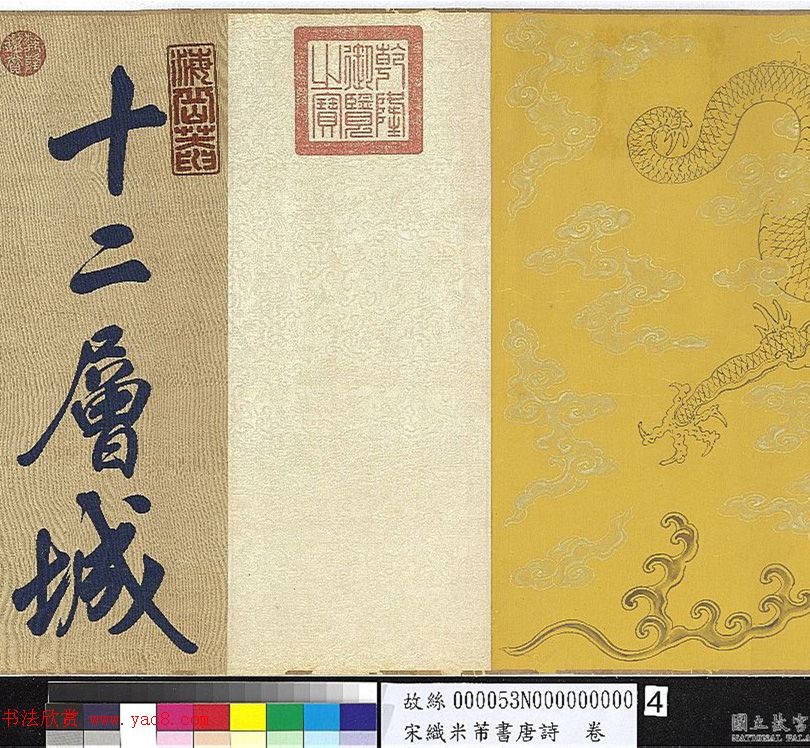 乾隆
御覽
之寶
十二層城
故絲000053N000000000 4
宋織米芾書唐詩 卷
书法欣赏 www.yac8.com
國立故宮
NATIONAL PALA